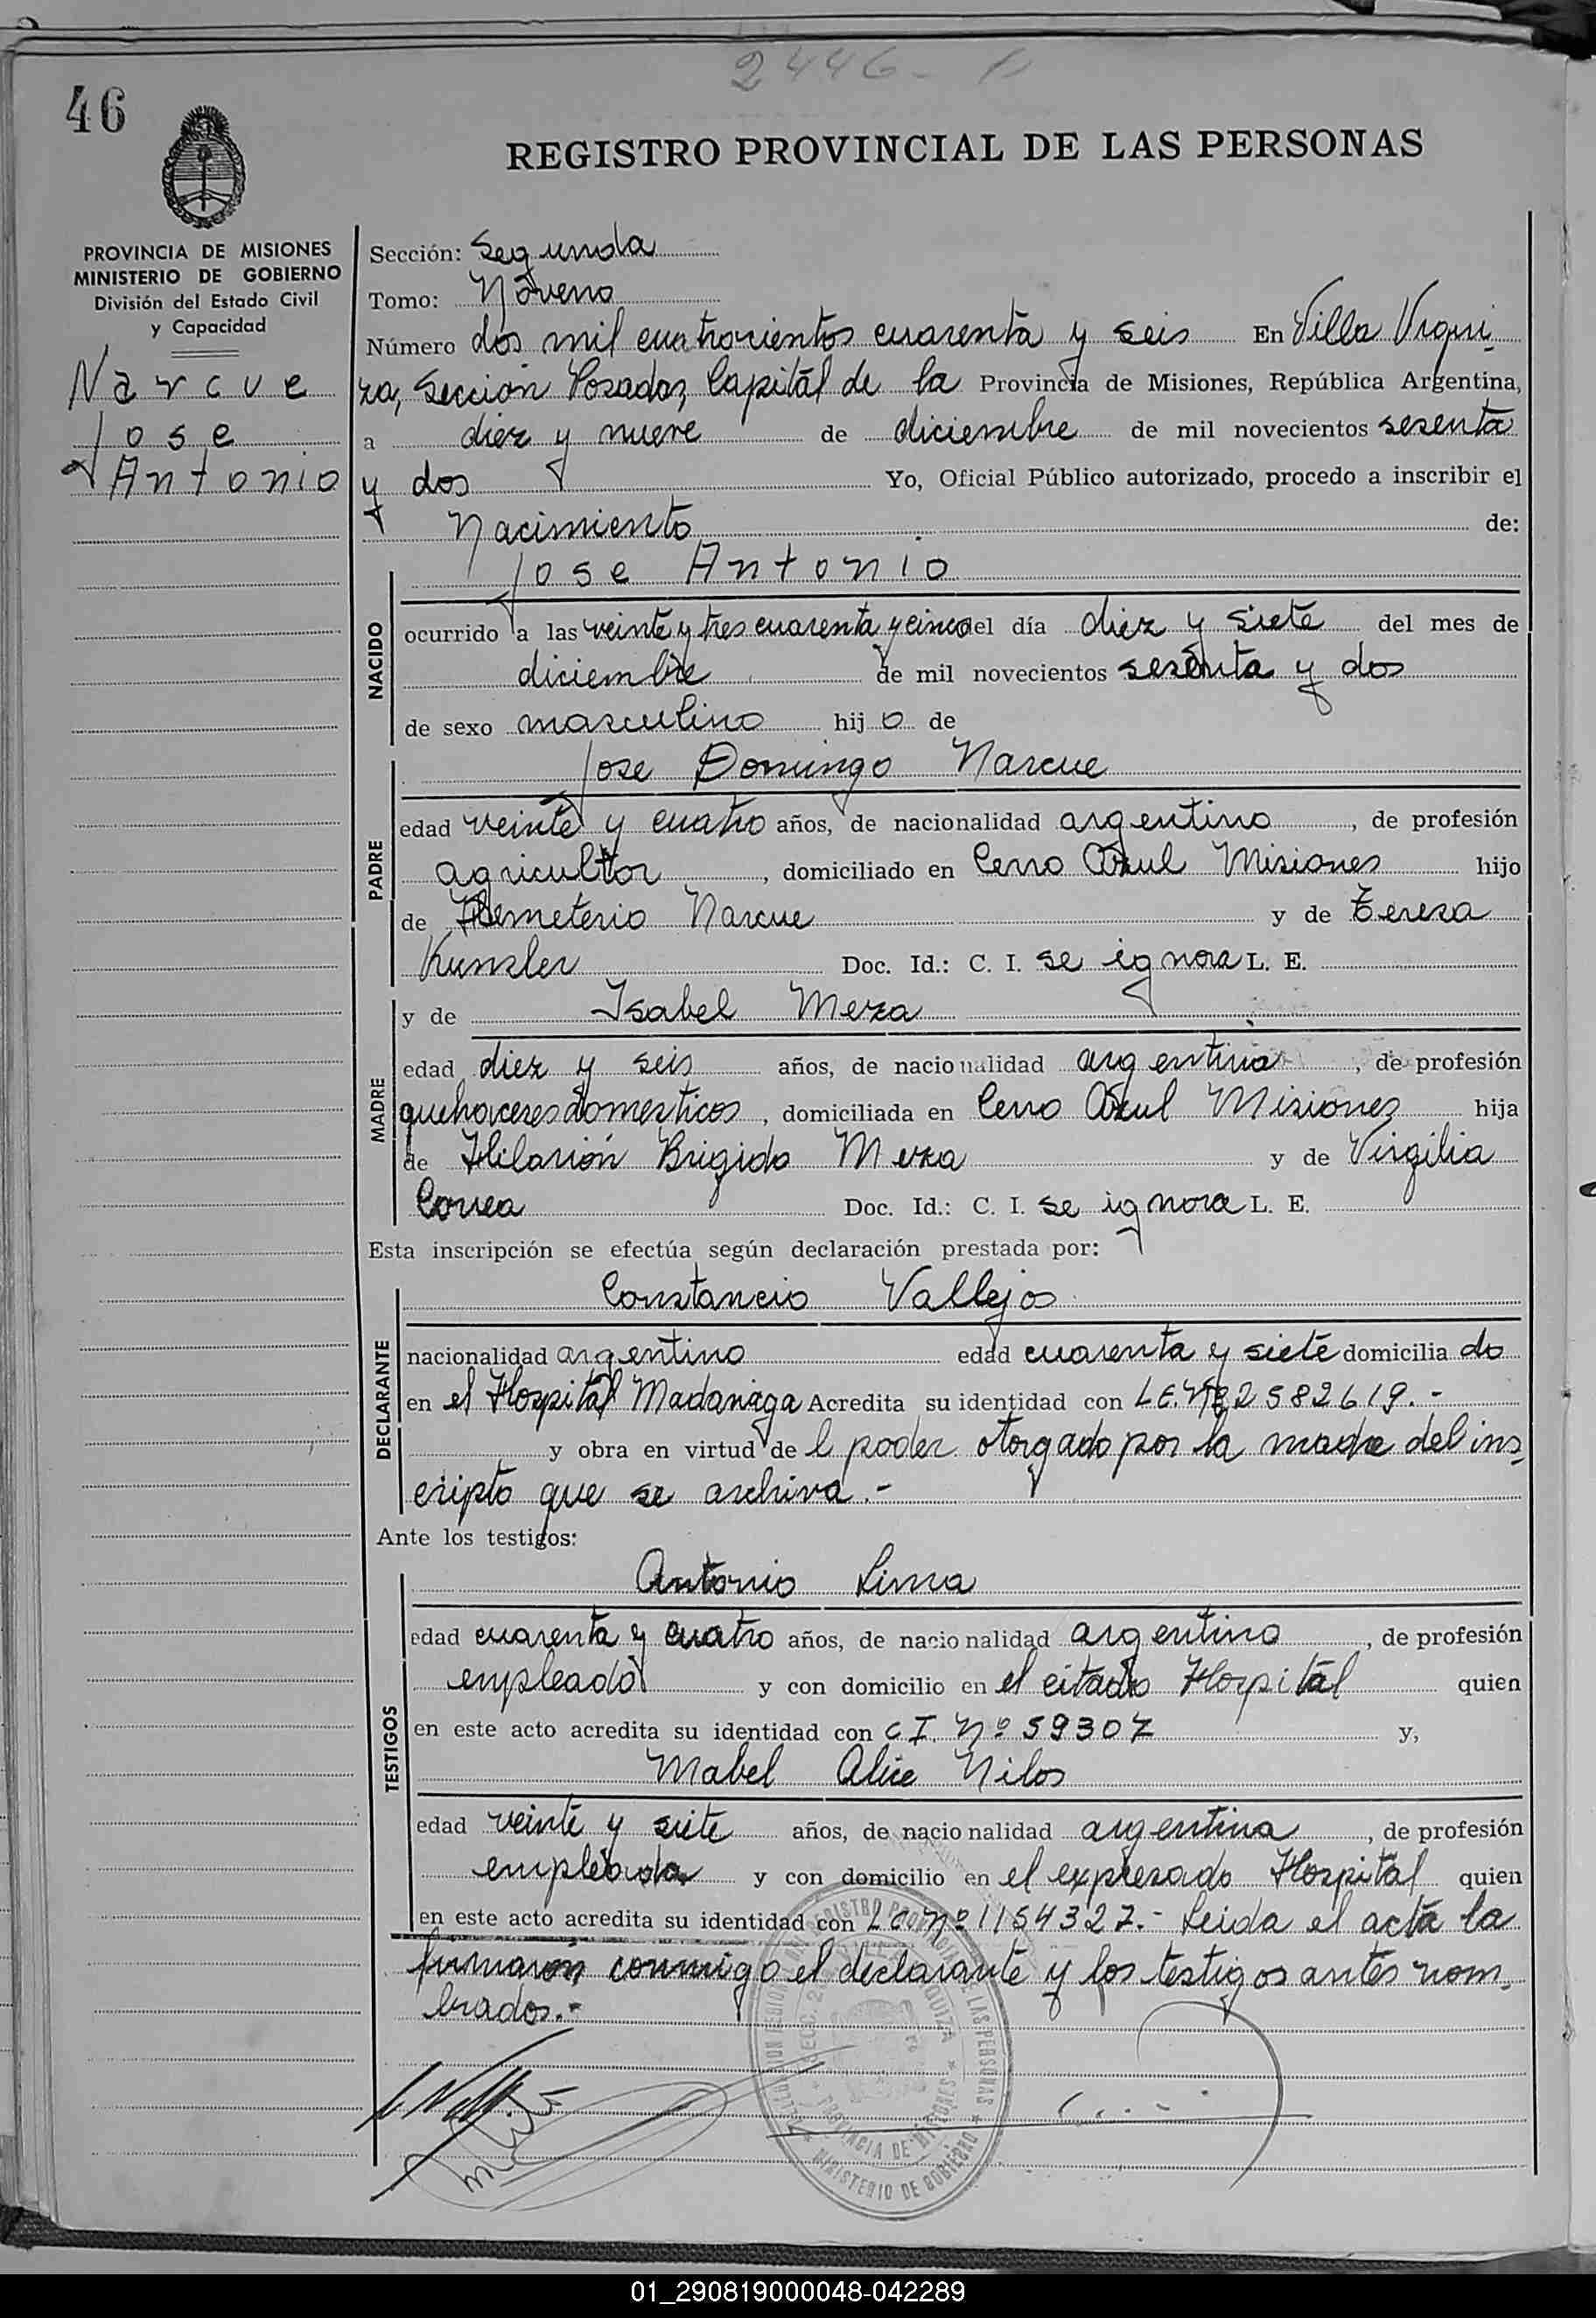 2446
46
REGISTRO PROVINCIAL DE LAS PERSONAS
PROVINCIA DE MISIONES
MINISTERIO DE GOBIERNO
División del Estado Civil
y Capacidad
Narcue
Jose
Antonio
Sección: Segunda
Tomo: Noveno
Número dos mil cuatrocientos cuarenta y seis En Villa Urqui-
za, Sección Posadas, Capital de la Provincia de Misiones, República Argentina,
a diez y nueve de diciembre de mil novecientos sesenta
y dos Yo, Oficial Público autorizado, procedo a inscribir el
Nacimiento de:
Jose Antonio
NACIDO
ocurrido a las veinte y tres cuarenta y cinco del día diez y siete del mes de
diciembre de mil novecientos sesenta y dos
de sexo masculino hijo de
Jose Domingo Narcue
PADRE
edad veinte y cuatro años, de nacionalidad argentino, de profesión
agricultor, domiciliado en Cerro Azul Misiones hijo
de Hemeterio Narcue y de Teresa
Kunzler Doc. Id.: C. I. se ignora L. E.
y de Isabel Meza
MADRE
edad diez y seis años, de nacionalidad argentina, de profesión
quehaceres domesticos, domiciliada en Cerro Azul Misiones hija
de Hilarión Brigido Meza y de Virgilia
Correa Doc. Id.: C. I. se ignora L. E.
Esta inscripción se efectúa según declaración prestada por:
Constancio Vallejos
DECLARANTE
nacionalidad argentino edad cuarenta y siete domiciliado
en el Hospital Madariaga Acredita su identidad con L.E. Nº 2582619.-
y obra en virtud del poder otorgado por la madre del ins-
cripto que se archiva.-
Ante los testigos:
Antonio Lima
TESTIGOS
edad cuarenta y cuatro años, de nacionalidad argentino, de profesión
empleado y con domicilio en el citado Hospital quien
en este acto acredita su identidad con C I. Nº 59307 y,
Mabel Alice Nilos
edad veinte y siete años, de nacionalidad argentina, de profesión
empleada y con domicilio en el expresado Hospital quien
en este acto acredita su identidad con L C Nº 1154327.- Leida el acta la
firmaron conmigo el declarante y los testigos antes nom-
brados.-
REGISTRO PROVINCIAL DE LAS PERSONAS
MINISTERIO DE GOBIERNO
PROVINCIA DE MISIONES
01_290819000048-042289